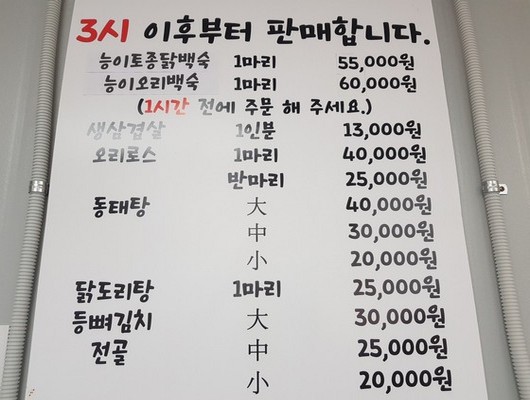 3시 이후부터 판매합니다.
능이토종닭백숙 1마리 55,000원
능이오리백숙 1마리 60,000원
(1시간 전에 주문 해 주세요.)
생삼겹살 1인분 13,000원
오리로스 1마리 40,000원
반마리 25,000원
동태탕 大 40,000원
中 30,000원
小 20,000원
닭도리탕 1마리 25,000원
등뼈김치 大 30,000원
전골 中 25,000원
小 20,000원